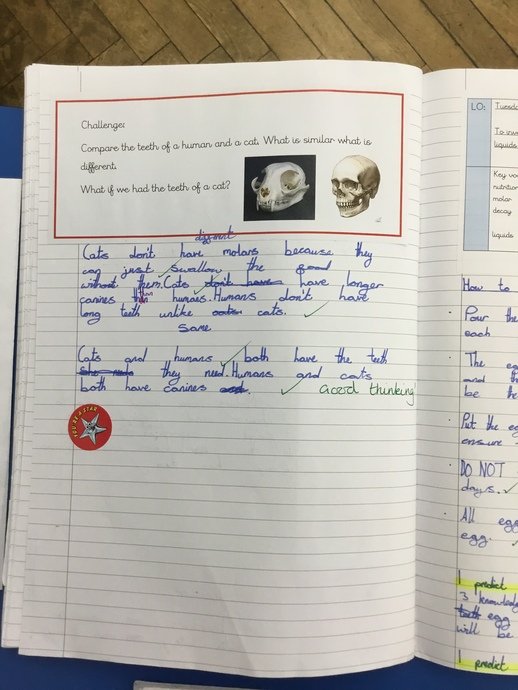 Challenge:
Compare the teeth of a human and a cat. What is similar what is
different.
What if we had the teeth of a cat?
different
Cats don't have molars because they
can just swallow the food
without them. Cats don't have have longer
canines than humans. Humans don't have
long teeth unlike cats cats.
Same
Cats and humans both have the teeth
they need. Humans and cats
both have canines
Good thinking
YOU'RE A STAR
LO:
Tuesda
To inve
liquids
Key vo
nutrition
molar
decay
liquids
How to
Pour the
each
The eg
and th
be the
Put the eg
ensure
DO NOT
days.
All egg
egg.
I predict
3 knowled
teeth egg
will be
I predict